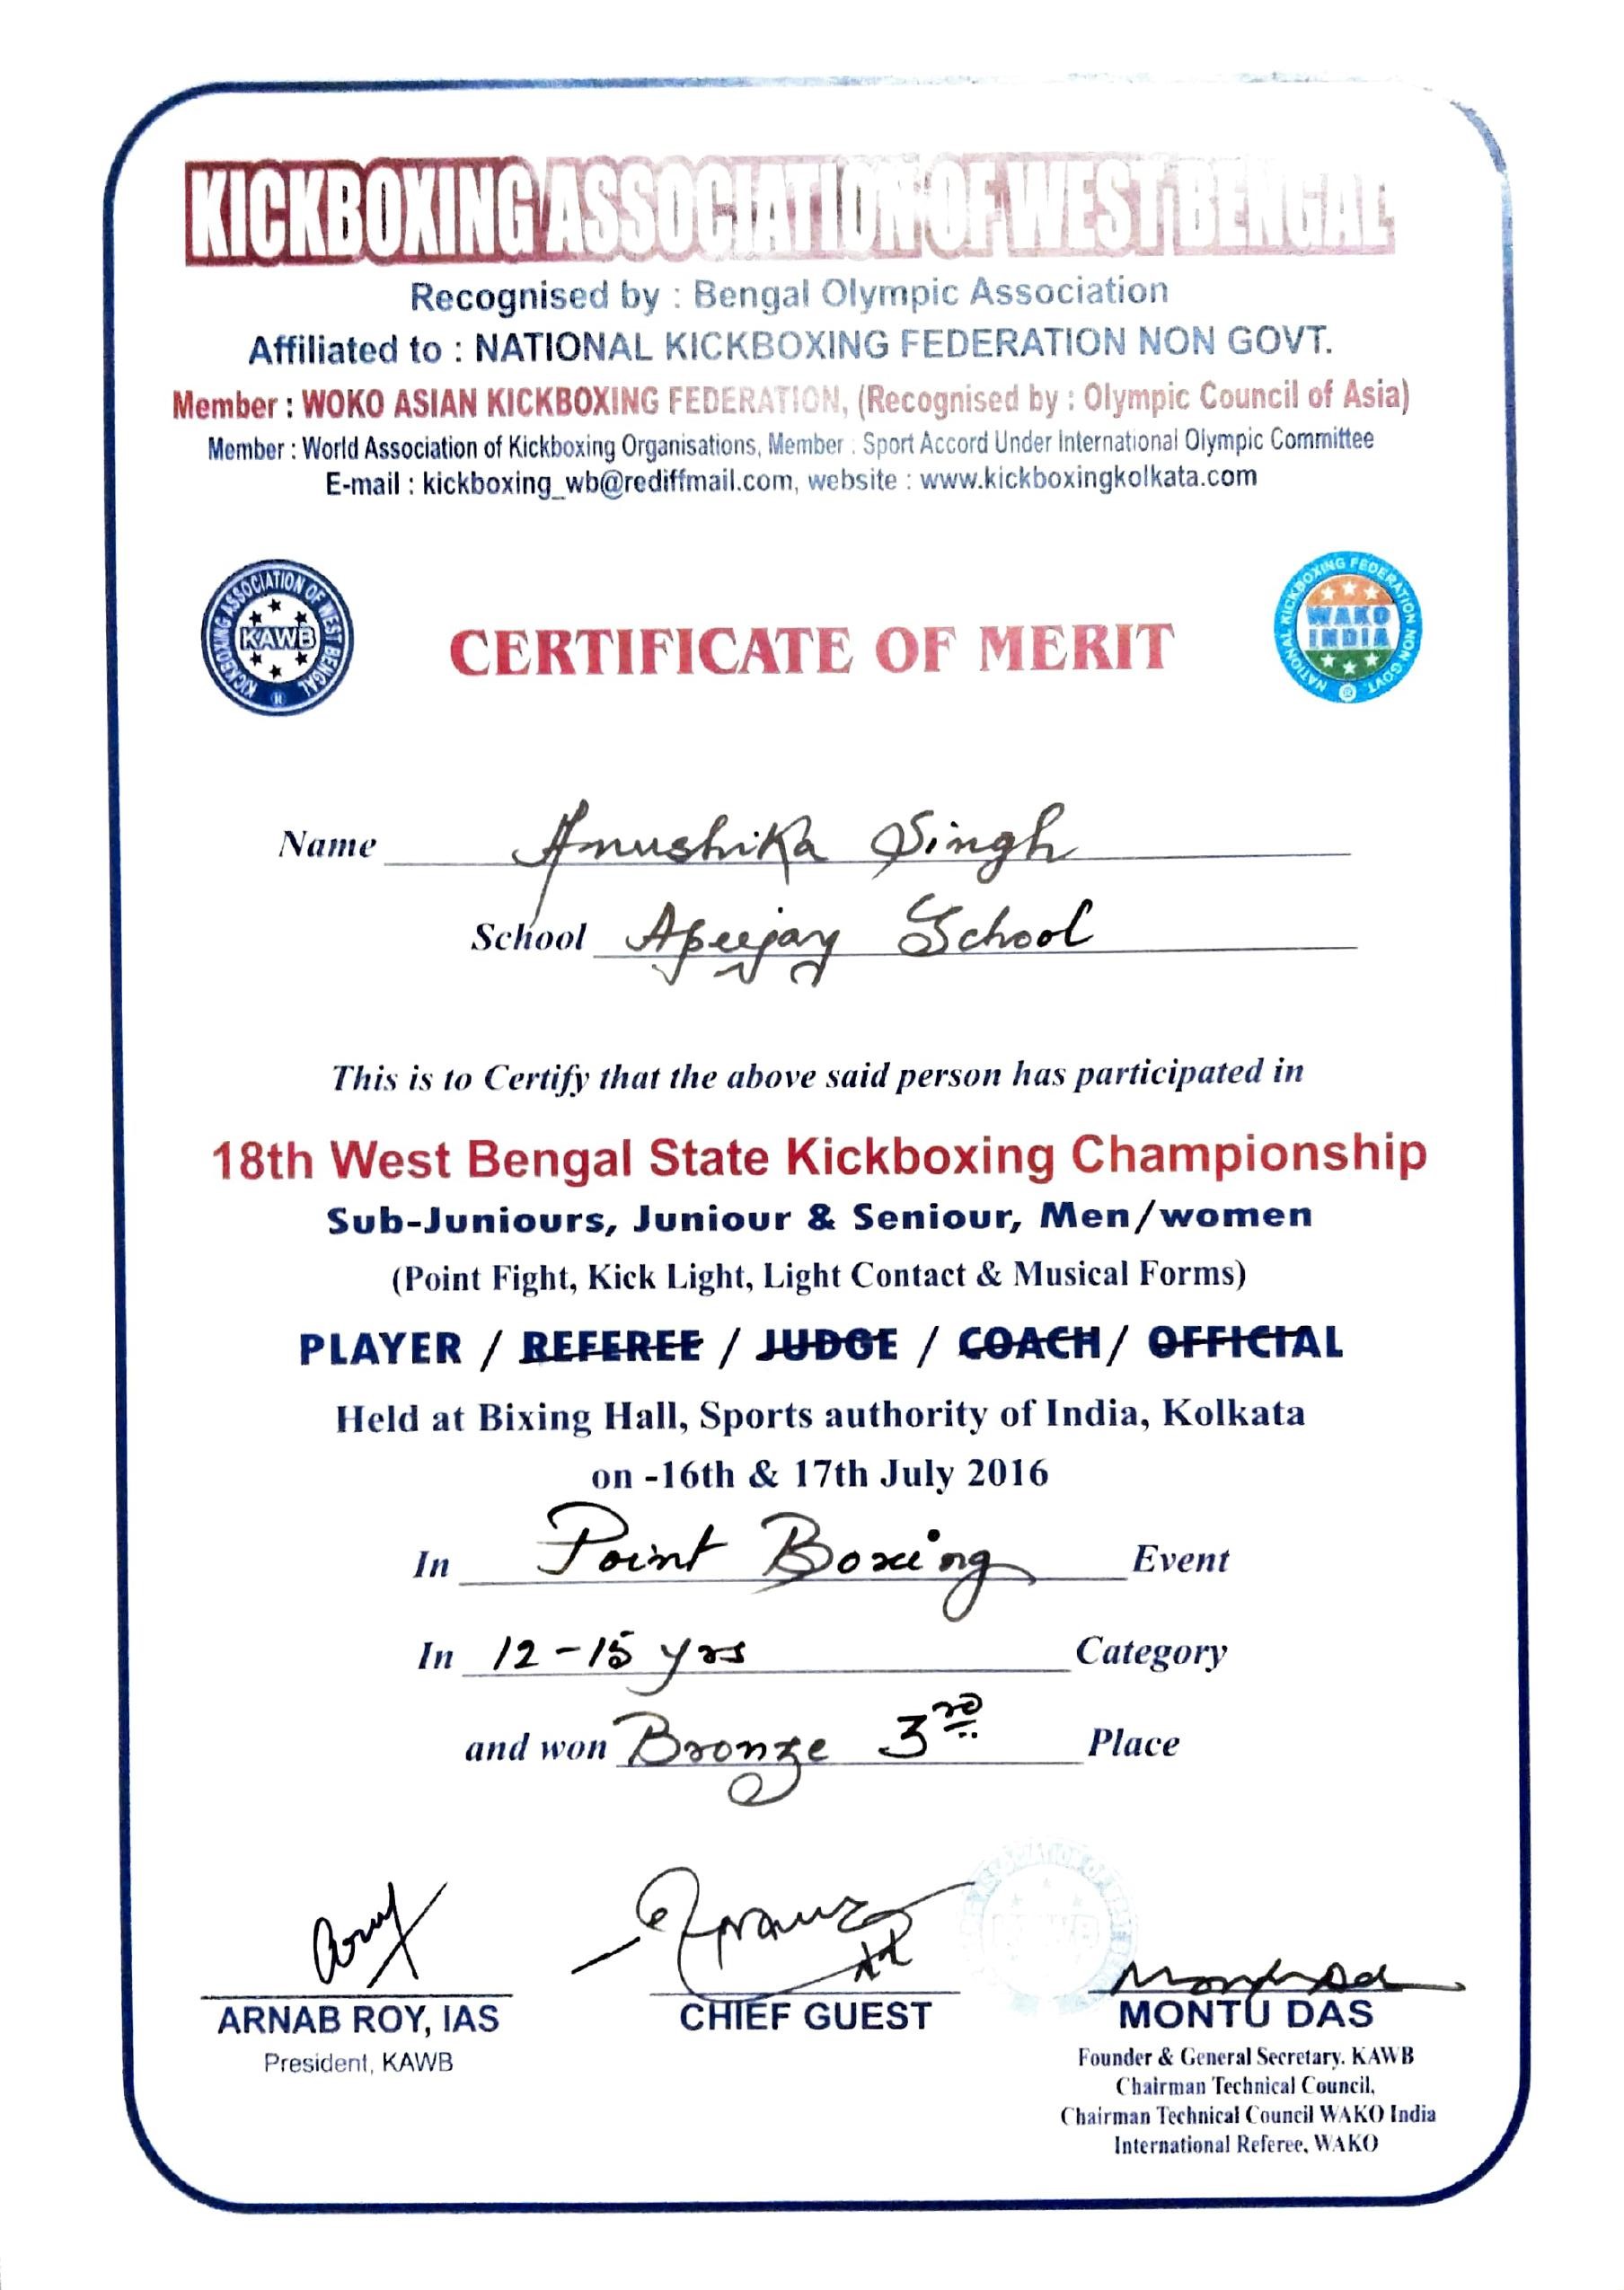 KICKBOXING ASSOCIATION OF WEST BENGAL
Recognised by : Bengal Olympic Association
Affiliated to : NATIONAL KICKBOXING FEDERATION NON GOVT.
Member : WOKO ASIAN KICKBOXING FEDERATION, (Recognised by : Olympic Council of Asia)
Member : World Association of Kickboxing Organisations, Member : Sport Accord Under International Olympic Committee
E-mail : kickboxing_wb@rediffmail.com, website : www.kickboxingkolkata.com
KICKBOXING ASSOCIATION OF WEST BENGAL
KAWB
CERTIFICATE OF MERIT
NATIONAL KICKBOXING FEDERATION NON GOVT.
WAKO
INDIA
Name Anushika Singh
School Apeejay School
This is to Certify that the above said person has participated in
18th West Bengal State Kickboxing Championship
Sub-Juniours, Juniour & Seniour, Men/women
(Point Fight, Kick Light, Light Contact & Musical Forms)
PLAYER / REFEREE / JUDGE / COACH / OFFICIAL
Held at Bixing Hall, Sports authority of India, Kolkata
on -16th & 17th July 2016
In Point Boxing Event
In 12-15 yrs Category
and won Bronze 3rd Place
ARNAB ROY, IAS
President, KAWB
CHIEF GUEST
KAWB
MONTU DAS
Founder & General Secretary. KAWB
Chairman Technical Council,
Chairman Technical Council WAKO India
International Referee, WAKO